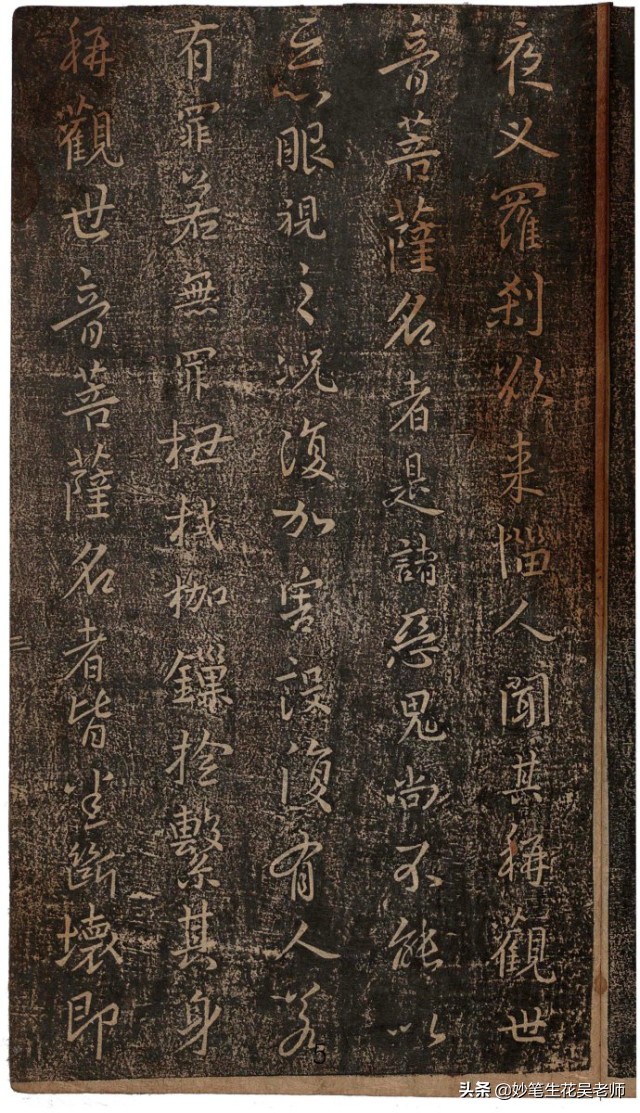 夜叉羅刹欲来惱人聞其稱觀世
音菩薩名者是諸惡鬼尚不能以
惡眼視之況復加害設復有人若
有罪若無罪杻械枷鏁撿繫其身
稱觀世音菩薩名者皆悉斷壞即
5
头条 @妙笔生花吴老师